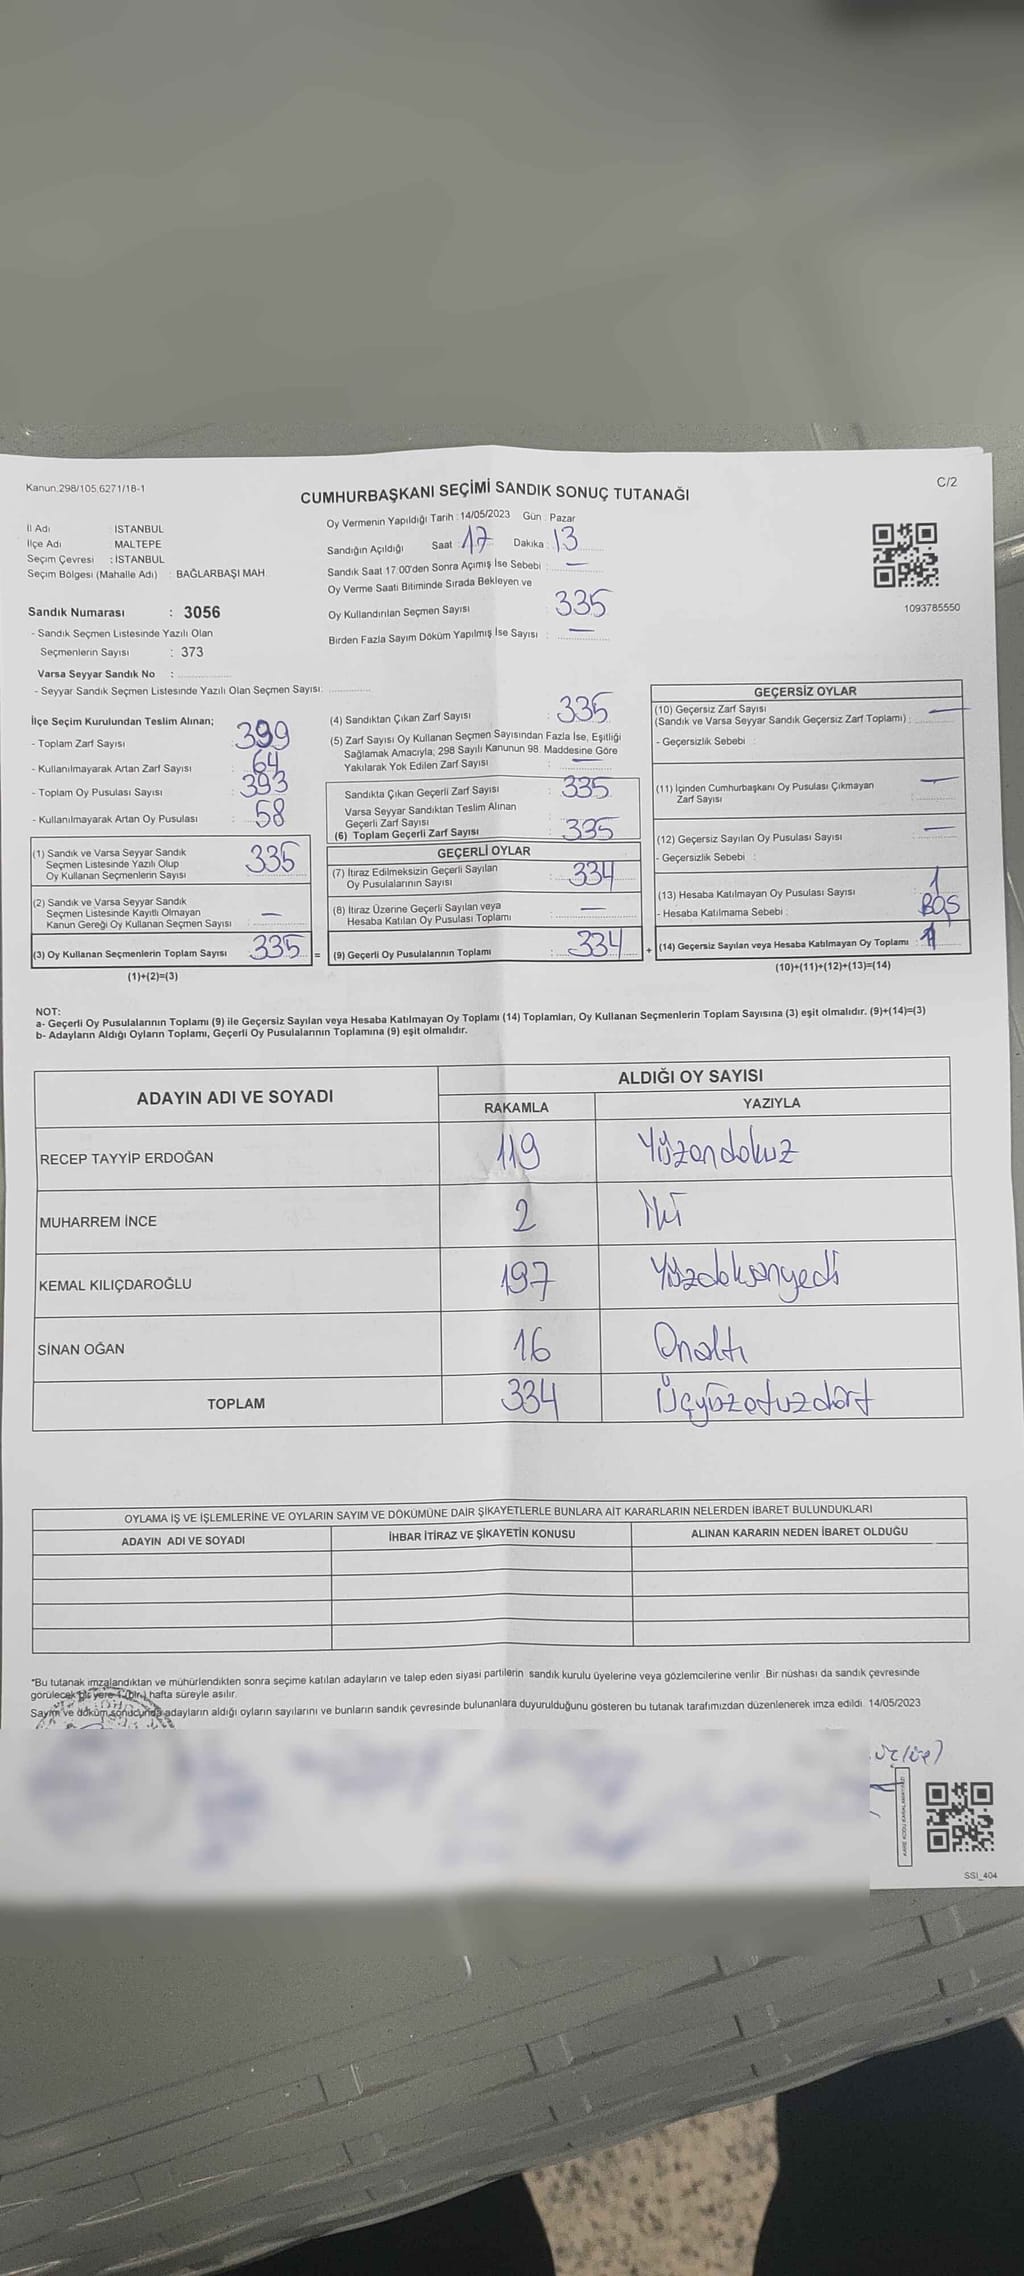 Kanun.298/105,6271/18-1
C/2
CUMHURBAŞKANI SEÇİMİ SANDIK SONUÇ TUTANAĞI
İl Adı İSTANBUL
İlçe Adı MALTEPE
Seçim Çevresi : İSTANBUL
Seçim Bölgesi (Mahalle Adı) : BAĞLARBAŞI MAH.
Sandık Numarası : 3056
- Sandık Seçmen Listesinde Yazılı Olan
Seçmenlerin Sayısı : 373
Varsa Seyyar Sandık No :
- Seyyar Sandık Seçmen Listesinde Yazılı Olan Seçmen Sayısı:
Oy Vermenin Yapıldığı Tarih : 14/05/2023 Gün : Pazar
Sandığın Açıldığı Saat : 17 Dakika : 13
Sandık Saat 17:00'den Sonra Açımış İse Sebebi : —
Oy Verme Saati Bitiminde Sırada Bekleyen ve
Oy Kullandırılan Seçmen Sayısı 335
Birden Fazla Sayım Döküm Yapılmış İse Sayısı : —
1093785550
İlçe Seçim Kurulundan Teslim Alınan;
- Toplam Zarf Sayısı : 399
- Kullanılmayarak Artan Zarf Sayısı : 64
- Toplam Oy Pusulası Sayısı : 393
- Kullanılmayarak Artan Oy Pusulası : 58
(1) Sandık ve Varsa Seyyar Sandık
Seçmen Listesinde Yazılı Olup
Oy Kullanan Seçmenlerin Sayısı 335
(2) Sandık ve Varsa Seyyar Sandık
Seçmen Listesinde Kayıtlı Olmayan
Kanun Gereği Oy Kullanan Seçmen Sayısı : —
(3) Oy Kullanan Seçmenlerin Toplam Sayısı 335 =
(1)+(2)=(3)
(4) Sandıktan Çıkan Zarf Sayısı : 335
(5) Zarf Sayısı Oy Kullanan Seçmen Sayısından Fazla İse, Eşitliği
Sağlamak Amacıyla, 298 Sayılı Kanunun 98. Maddesine Göre
Yakılarak Yok Edilen Zarf Sayısı : —
Sandıkta Çıkan Geçerli Zarf Sayısı : 335
Varsa Seyyar Sandıktan Teslim Alınan
Geçerli Zarf Sayısı
(6) Toplam Geçerli Zarf Sayısı : 335
GEÇERLİ OYLAR
(7) İtiraz Edilmeksizin Geçerli Sayılan
Oy Pusulalarının Sayısı : 334
(8) İtiraz Üzerine Geçerli Sayılan veya
Hesaba Katılan Oy Pusulası Toplamı : —
(9) Geçerli Oy Pusulalarının Toplamı : 334 +
GEÇERSİZ OYLAR
(10) Geçersiz Zarf Sayısı
(Sandık ve Varsa Seyyar Sandık Geçersiz Zarf Toplamı) : —
- Geçersizlik Sebebi :
(11) İçinden Cumhurbaşkanı Oy Pusulası Çıkmayan
Zarf Sayısı : —
(12) Geçersiz Sayılan Oy Pusulası Sayısı : —
- Geçersizlik Sebebi :
(13) Hesaba Katılmayan Oy Pusulası Sayısı : 1
- Hesaba Katılmama Sebebi : BOŞ
(14) Geçersiz Sayılan veya Hesaba Katılmayan Oy Toplamı : 1
(10)+(11)+(12)+(13)=(14)
NOT:
a- Geçerli Oy Pusulalarının Toplamı (9) ile Geçersiz Sayılan veya Hesaba Katılmayan Oy Toplamı (14) Toplamları, Oy Kullanan Seçmenlerin Toplam Sayısına (3) eşit olmalıdır. (9)+(14)=(3)
b- Adayların Aldığı Oyların Toplamı, Geçerli Oy Pusulalarının Toplamına (9) eşit olmalıdır.
ADAYIN ADI VE SOYADI
ALDIĞI OY SAYISI
RAKAMLA YAZIYLA
RECEP TAYYİP ERDOĞAN 119 Yüzondokuz
MUHARREM İNCE 2 İki
KEMAL KILIÇDAROĞLU 197 Yüzdoksanyedi
SİNAN OĞAN 16 Onaltı
TOPLAM 334 Üçyüzotuzdört
OYLAMA İŞ VE İŞLEMLERİNE VE OYLARIN SAYIM VE DÖKÜMÜNE DAİR ŞİKAYETLERLE BUNLARA AİT KARARLARIN NELERDEN İBARET BULUNDUKLARI
ADAYIN ADI VE SOYADI İHBAR İTİRAZ VE ŞİKAYETİN KONUSU ALINAN KARARIN NEDEN İBARET OLDUĞU
*Bu tutanak imzalandıktan ve mühürlendikten sonra seçime katılan adayların ve talep eden siyasi partilerin sandık kurulu üyelerine veya gözlemcilerine verilir. Bir nüshası da sandık çevresinde
görülecek bir yere 1 (bir) hafta süreyle asılır.
Sayım ve döküm sonucunda adayların aldığı oyların sayılarını ve bunların sandık çevresinde bulunanlara duyurulduğunu gösteren bu tutanak tarafımızdan düzenlenerek imza edildi. 14/05/2023
SSI_404